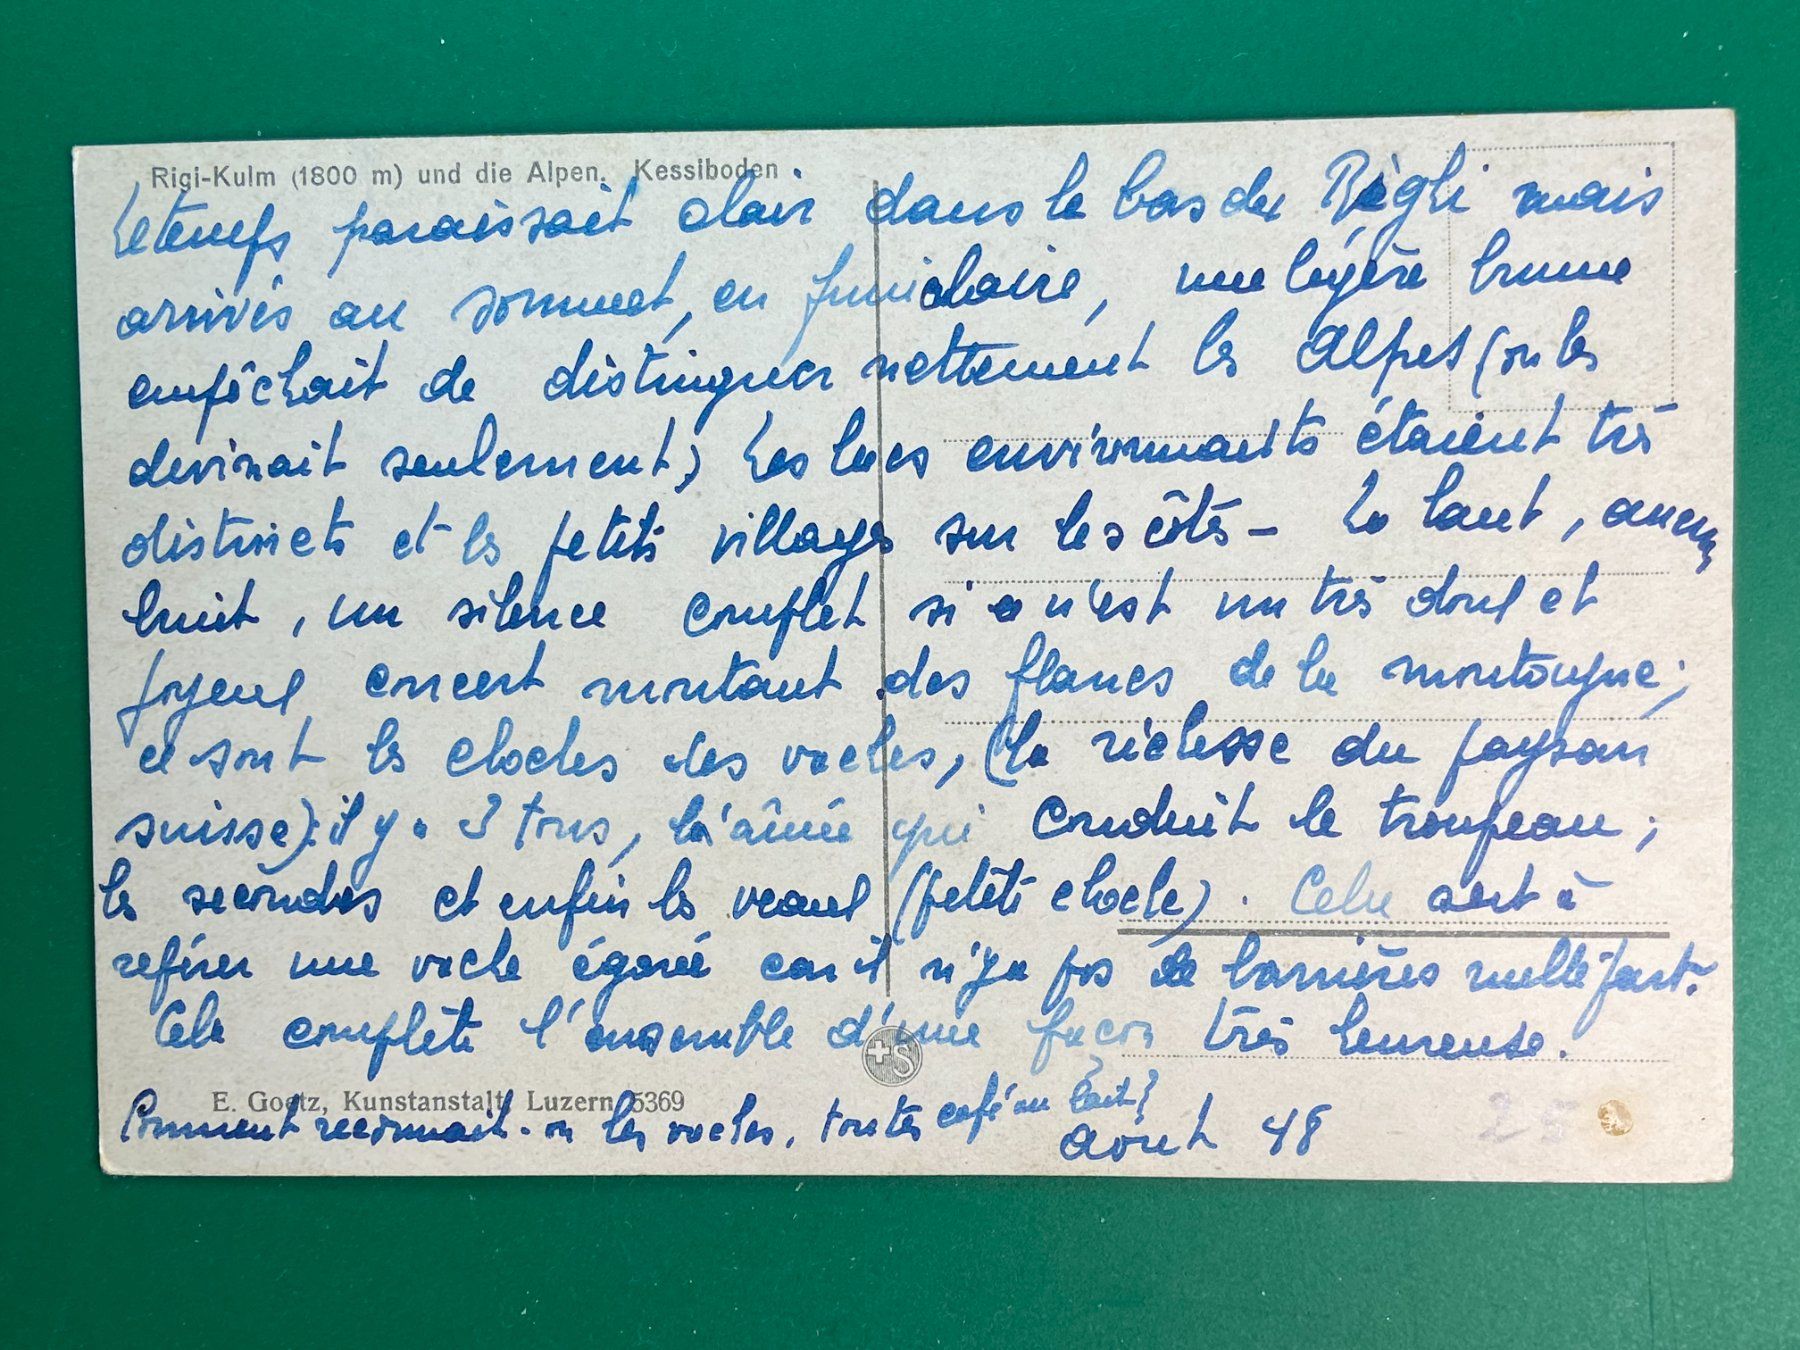 Rigi-Kulm (1800 m) und die Alpen. Kessiboden
Le temps paraissait clair dans le bas du Righi mais
arrivés au sommet, en funiculaire, une légère brume
empêchait de distinguer nettement les Alpes (on les
devinait seulement) Les lacs environnants étaient très
distincts et les petits villages sur les côtés - Là haut, aucun
bruit, un silence complet si ce n'est un très doux et
joyeux concert montant des flancs de la montagne;
ce sont les cloches des vaches, (la richesse du paysan
suisse): il y a 3 tons, la'aînée qui conduit le troupeau;
les secondes et enfin les veaux (petite cloche). Cela sert à
repérer une vache égarée car il n'y a pas de barrières nulle part.
Cela complète l'ensemble d'une façon très heureuse.
E. Goetz, Kunstanstalt, Luzern 5369
Comment reconnait-on les vaches, toutes café au lait?
août 48
25
+S